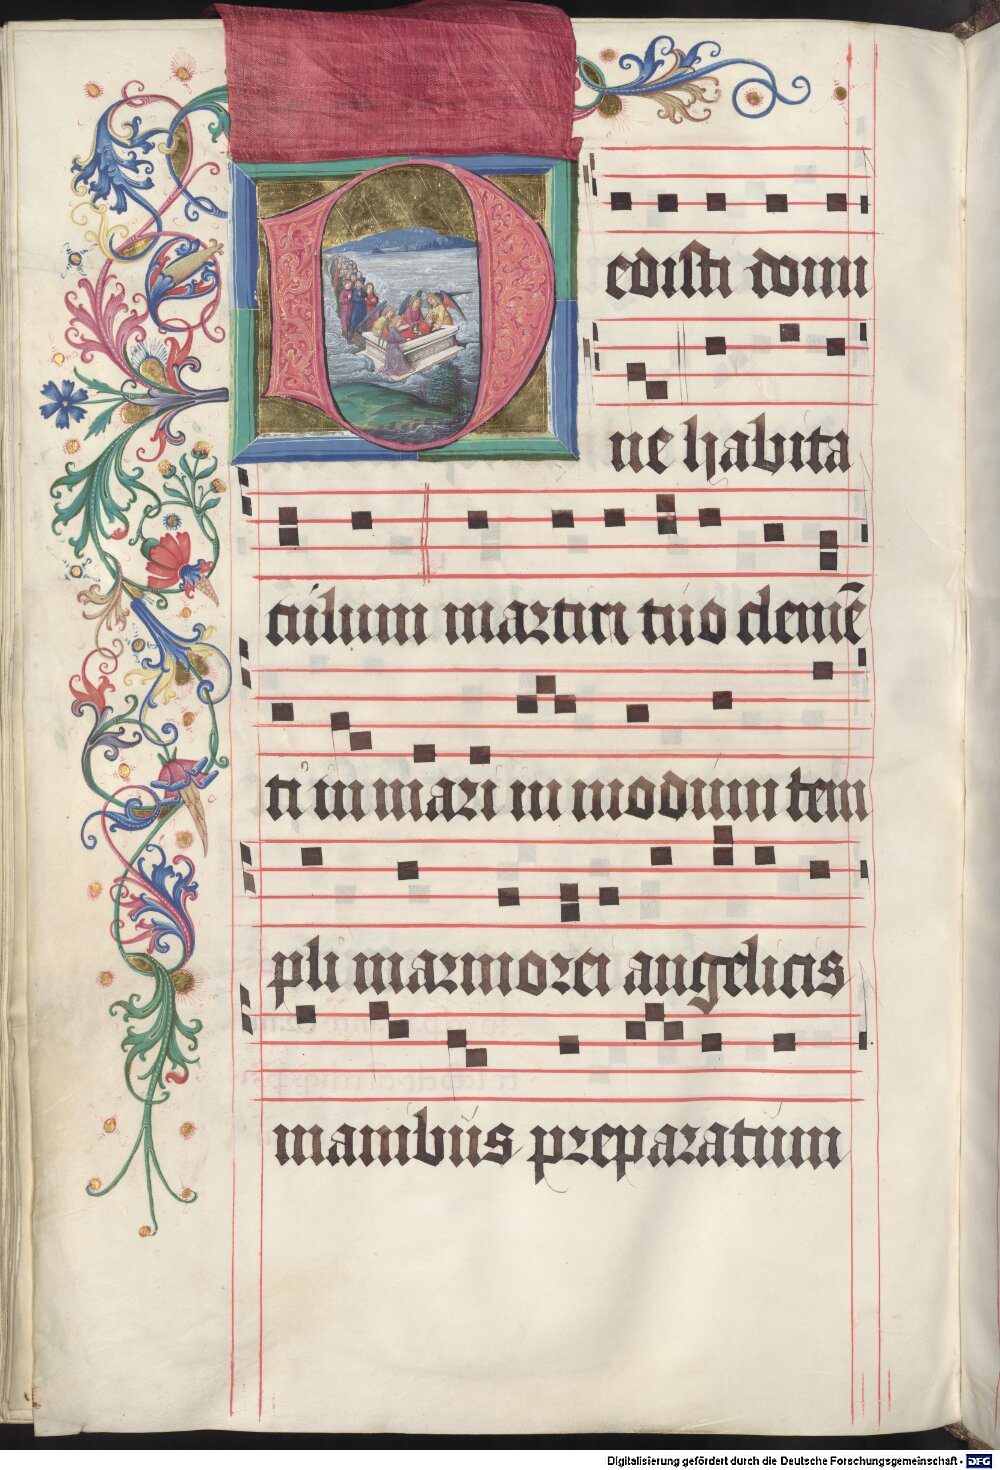 Dedisti domi
ne habita
culum martiri tuo clemē
ti in mari in modum tem
pli marmorei angelicis
manibus preparatum
Digitalisierung gefördert durch die Deutsche Forschungsgemeinschaft - DFG